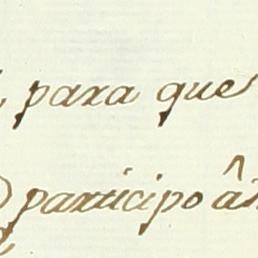 , para que
participo â